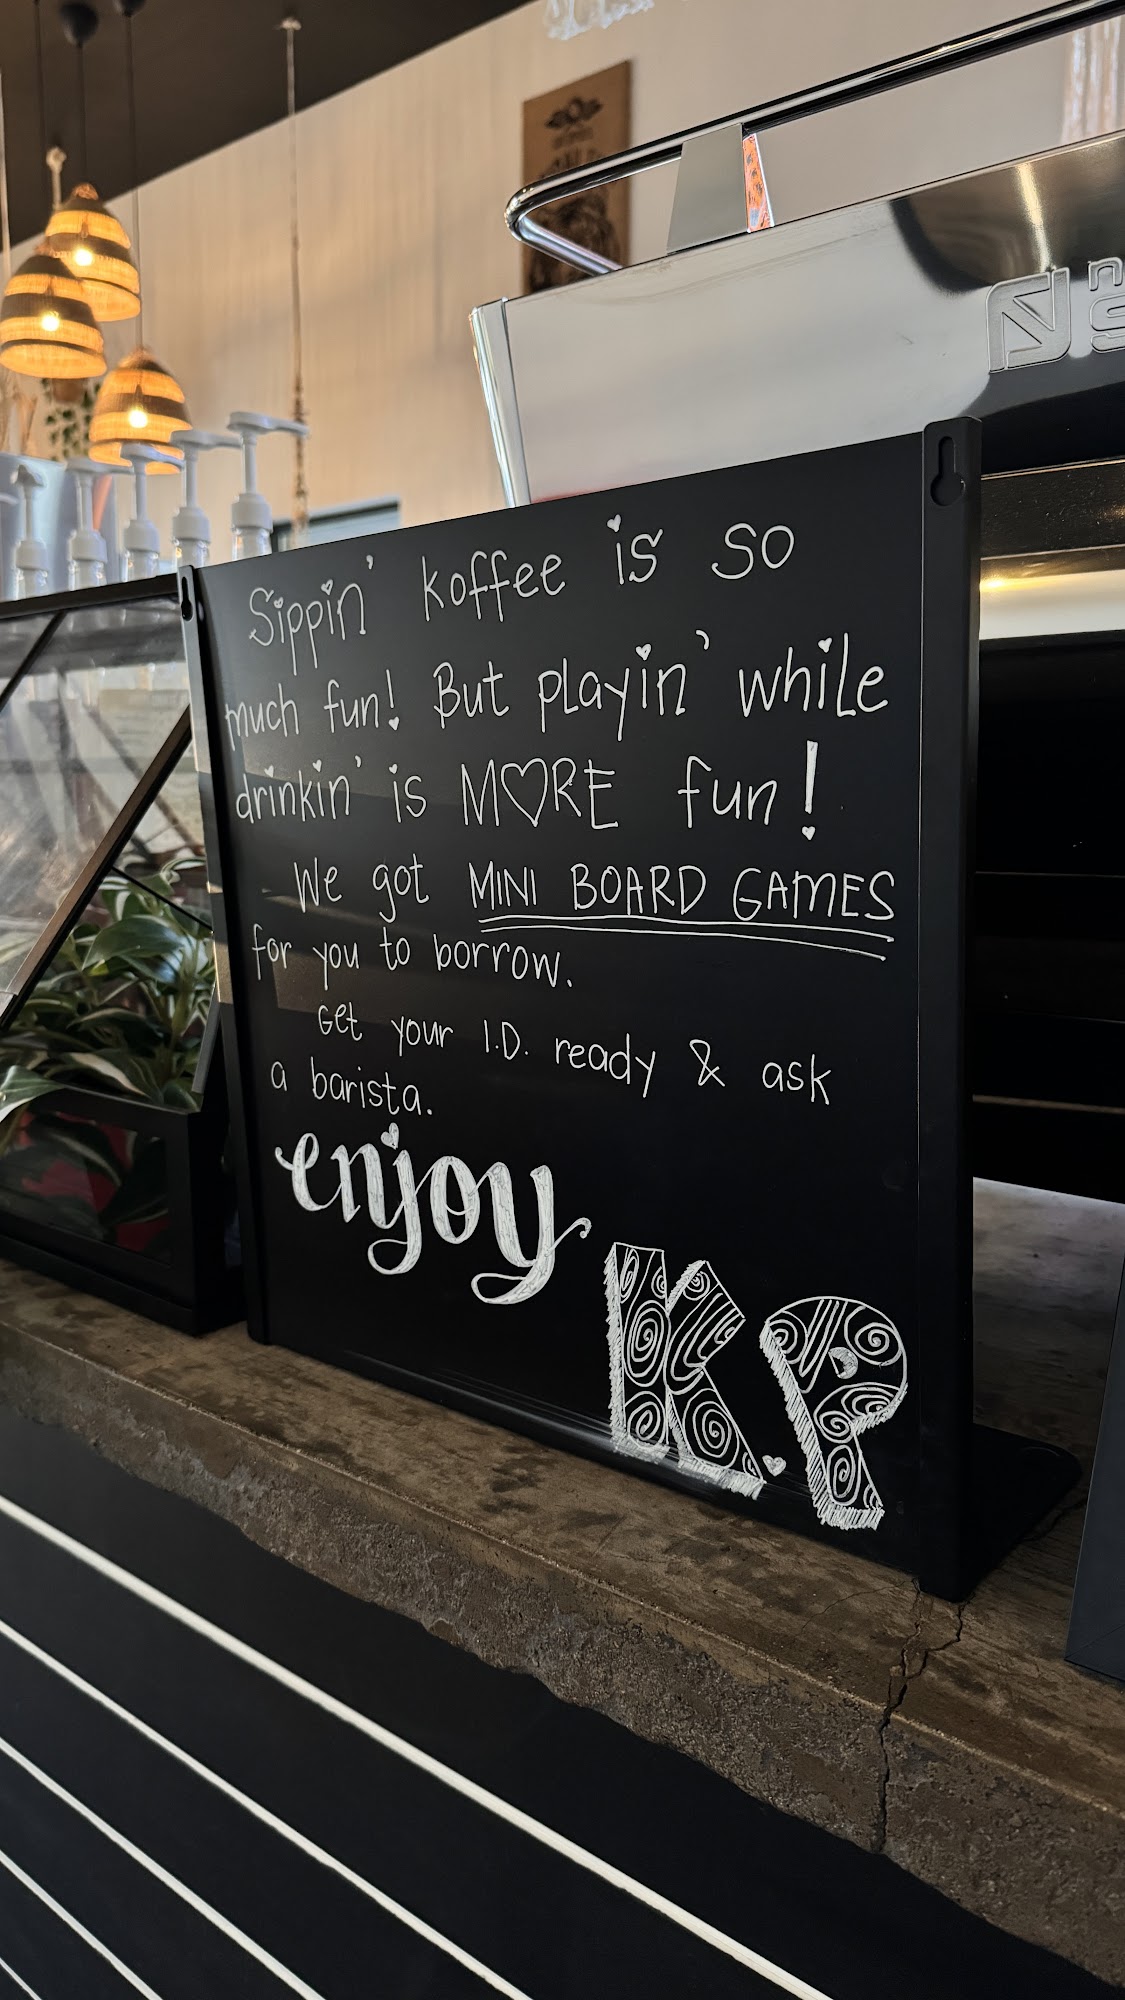 Sippin' koffee is so
much fun! But playin' while
drinkin' is M♡RE fun!
We got MINI BOARD GAMES
for you to borrow.
Get your I.D. ready & ask
a barista.
enjoy
K.P